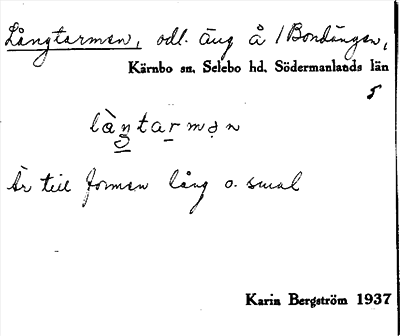 Långtarmen, odl. äng å /Bondängen,
Kärnbo sn, Selebo hd, Södermanlands län
5
là̀ŋtarmən
Är till formen lång o. smal
Karin Bergström 1937